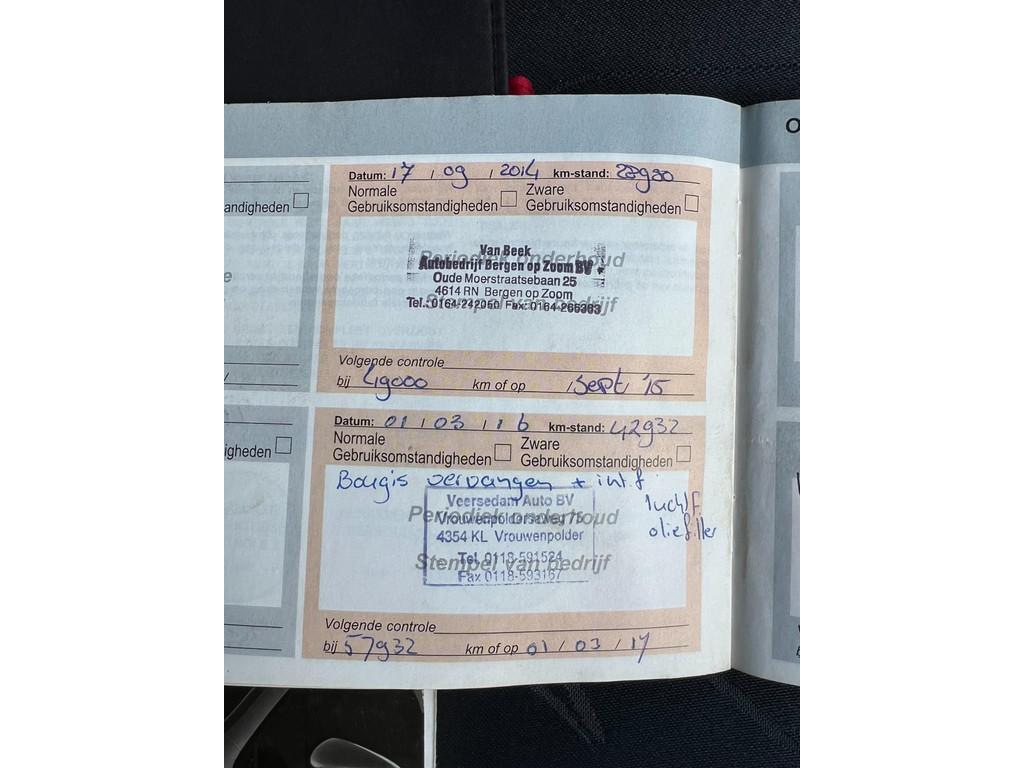 O
andigheden
Datum: 17 / 09 / 2014 km-stand: 28930
Normale Gebruiksomstandigheden
Zware Gebruiksomstandigheden
Periodiek onderhoud
Stempel van bedrijf
Van Beek
Autobedrijf Bergen op Zoom BV
Oude Moerstraatsebaan 25
4614 RN Bergen op Zoom
Tel.: 0164-242050 Fax: 0164-266363
Volgende controle
bij 49000 km of op / Sept / '15
igheden
Datum: 01 / 03 / 16 km-stand: 42932
Normale Gebruiksomstandigheden
Zware Gebruiksomstandigheden
Bougis vervangen + int.f
luchtf.
oliefilter
Periodiek onderhoud
Stempel van bedrijf
Veersedam Auto BV
Vrouwenpolderseweg 75
4354 KL Vrouwenpolder
Tel. 0118-591524
Fax 0118-593167
Volgende controle
bij 57932 km of op 01 / 03 / 17